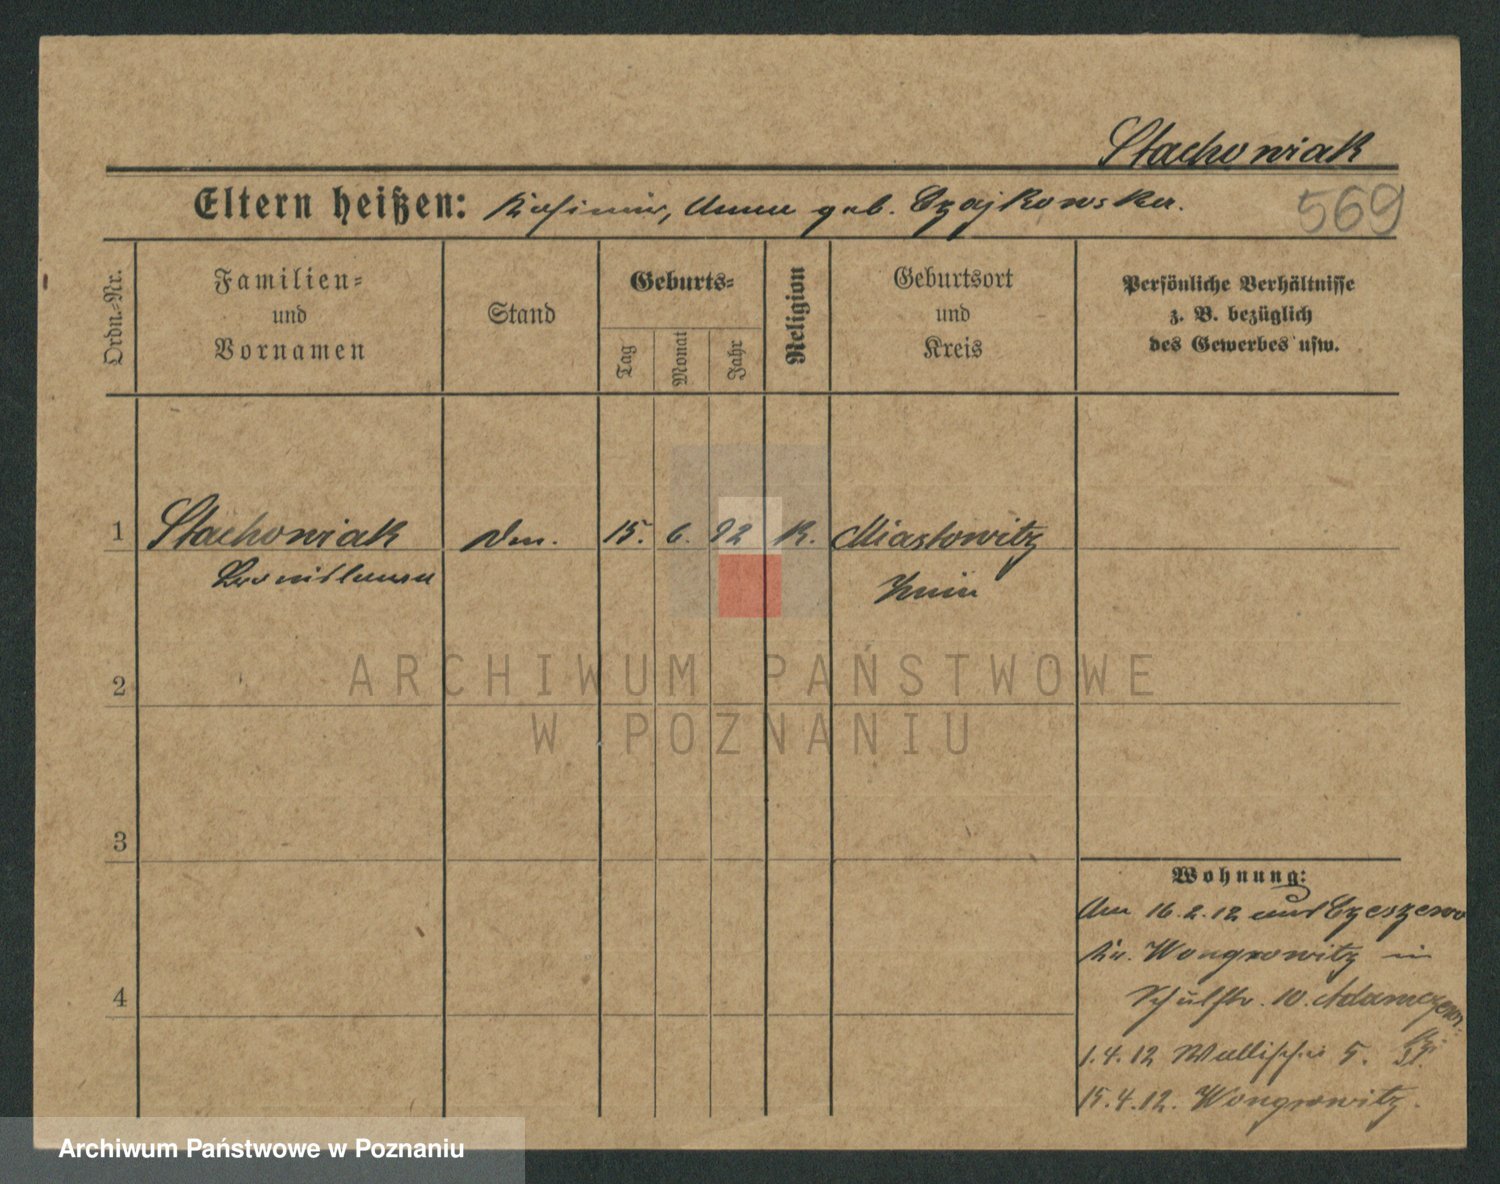 Stachowiak
Eltern heißen: Kasimir, Anna geb. Czajkowska.
569
Ordn.-Nr.
Familien-
und
Vornamen
Stand
Geburts-
Tag
Monat
Jahr
Religion
Geburtsort
und
Kreis
Persönliche Verhältnisse
z. B. bezüglich
des Gewerbes usw.
1 Stachowiak 15. 6. 92 K. Miastowitz
Bronislawa Znin
2
3
4
Wohnung:
Am 16.2.12 aus Czeszewo
Kr. Wongrowitz in
Schulstr. 10.
1.4.12 Wallischei 5.
15.4.12. Wongrowitz.
ARCHIWUM PAŃSTWOWE
W POZNANIU
Archiwum Państwowe w Poznaniu